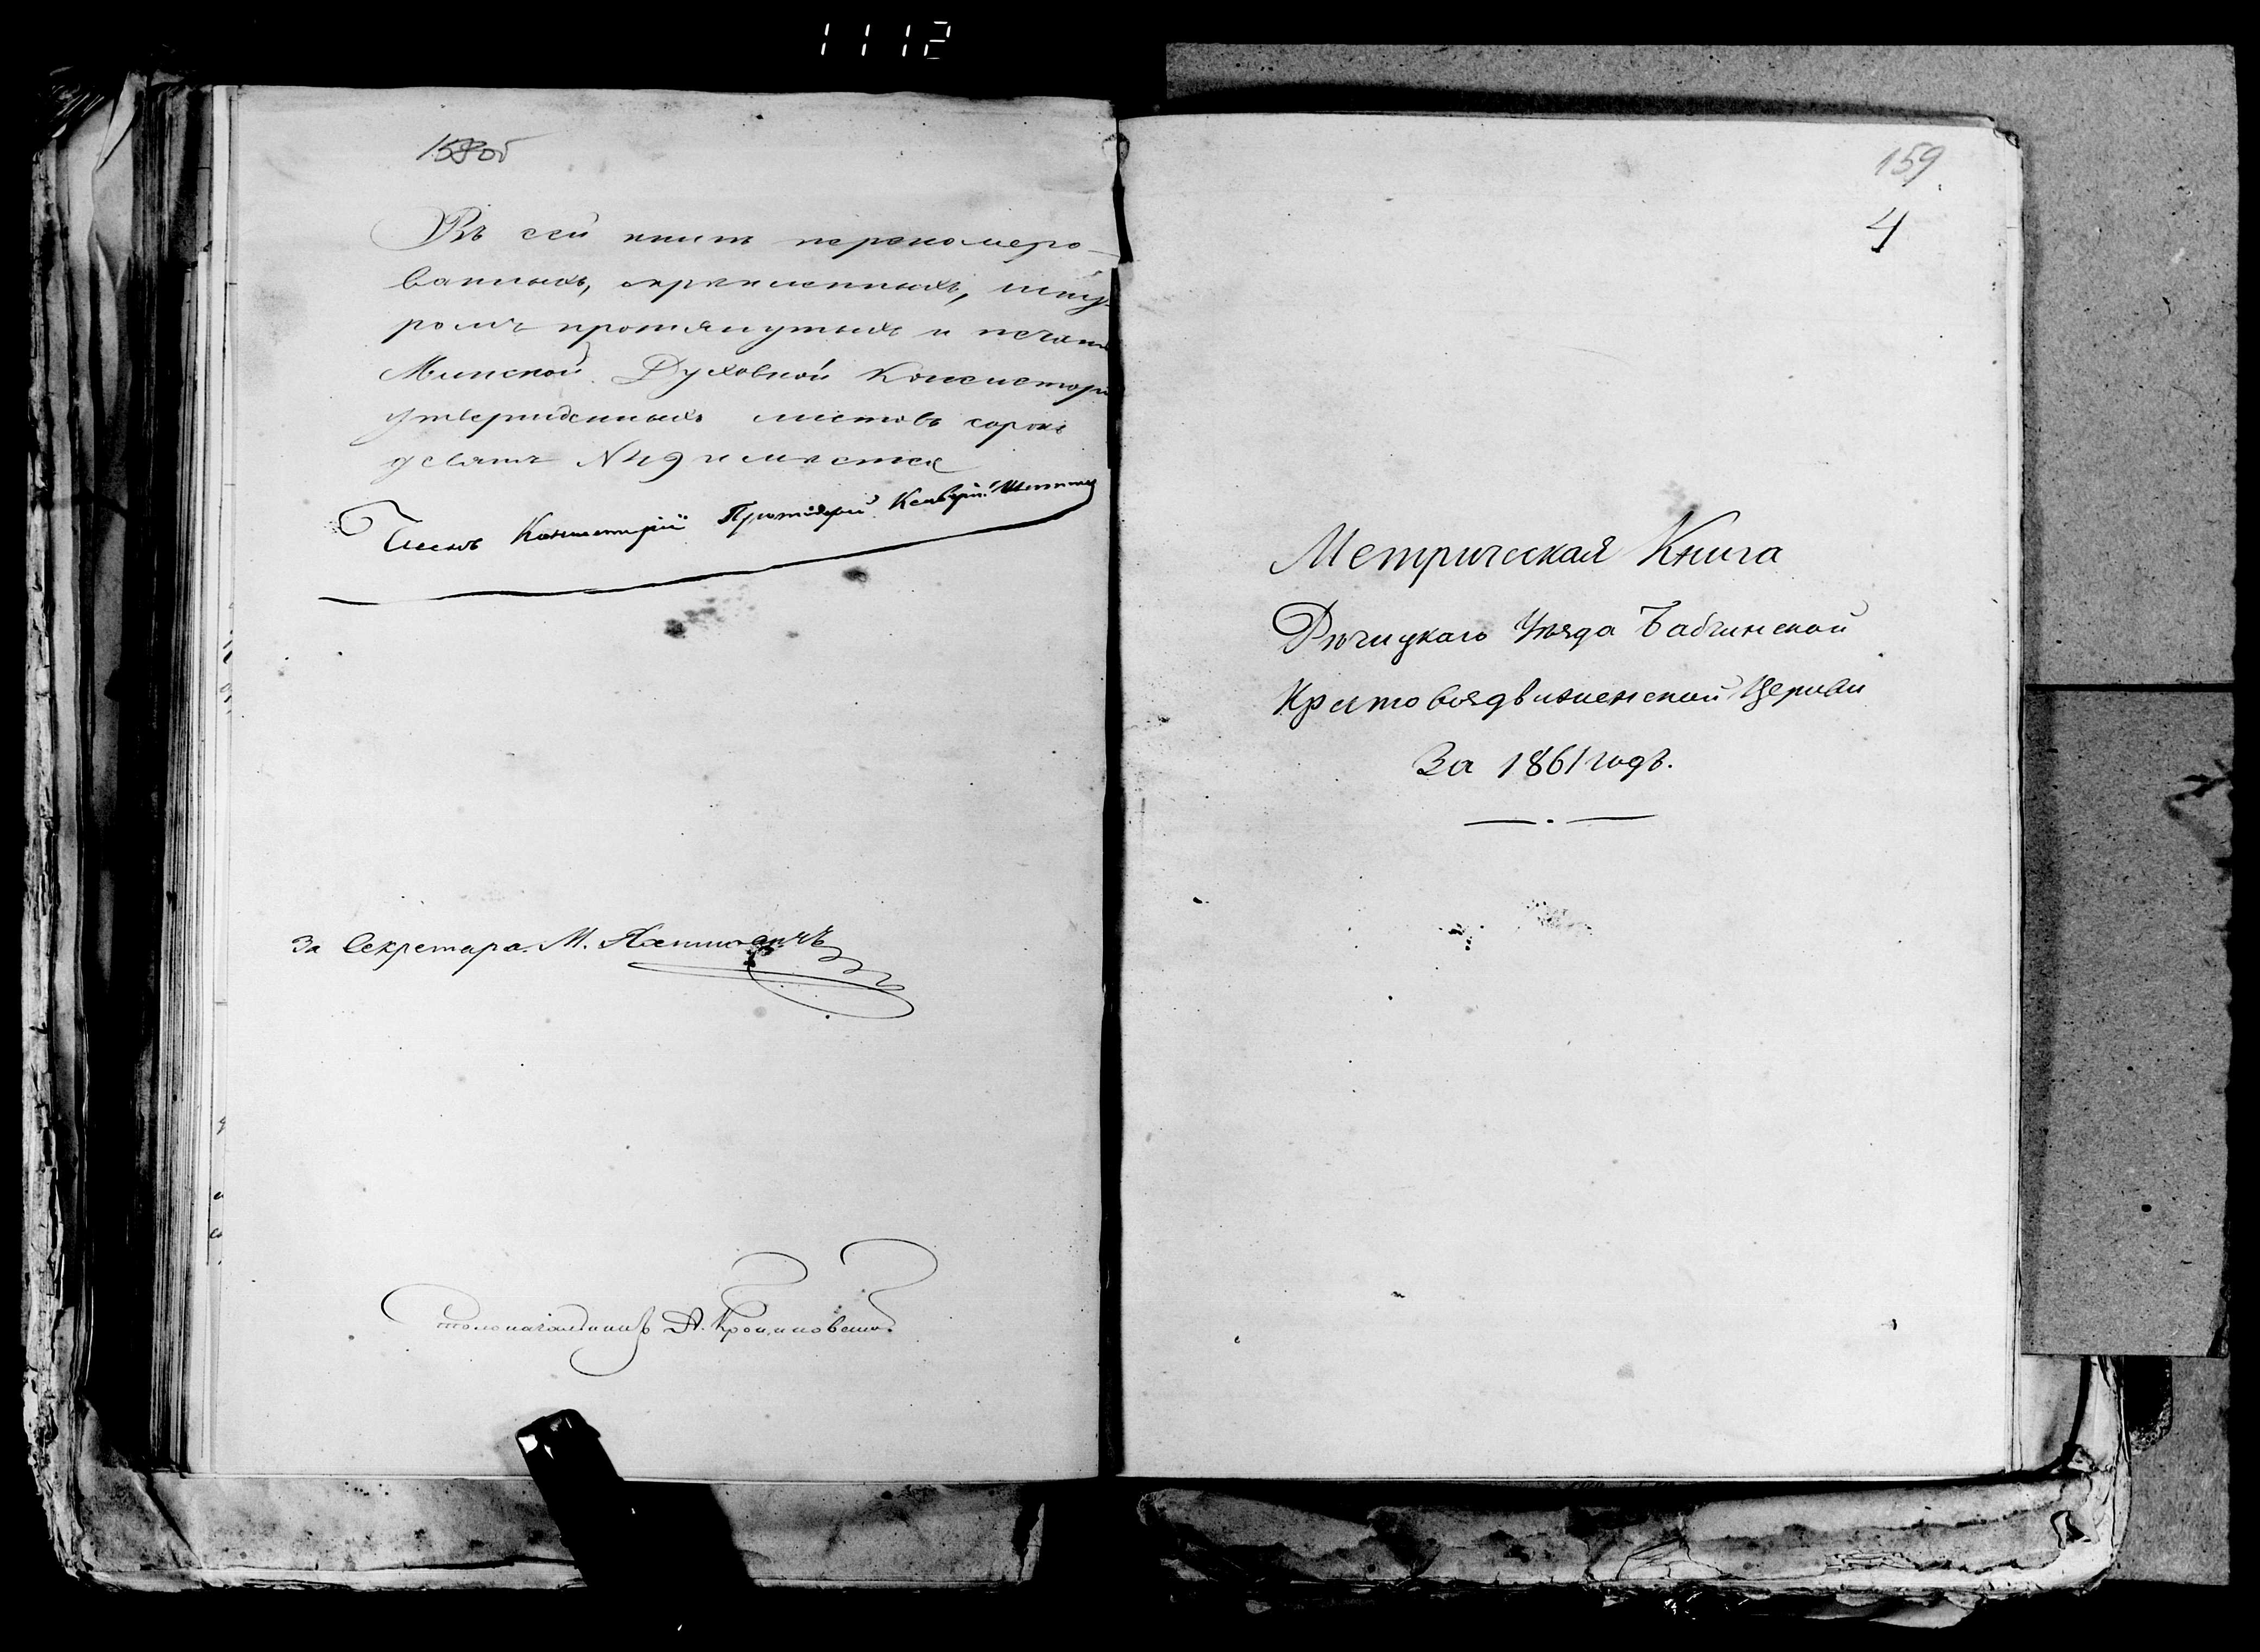 1112
158об
Въ сей книгѣ перономеро-
ванныхъ, скрѣпленныхъ, шну-
ромъ протянутыхъ и печат
Минской Духовной Консистори
утвержденныхъ листовъ сорокъ
девять N 49 и мѣстѣ
Членъ Консисторіи Протоіерей
За Секретаря М.
Столоначальникъ А.
159
4
Метрическая Книга
Рѣчицкаго Уѣзда Бабчинской
Крестовоздвиженской Церкви
За 1861 годъ.